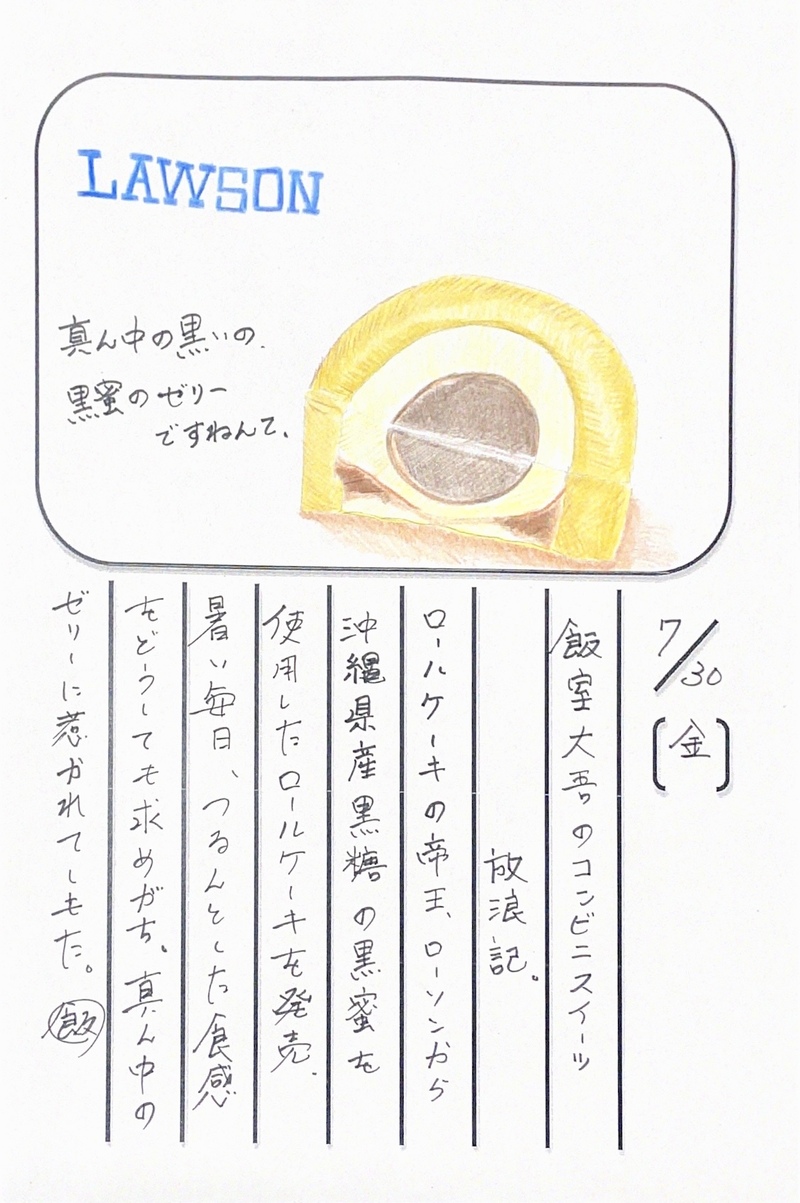 LAWSON
真ん中の黒いの、
黒蜜のゼリー
ですねんて、
7/30
(金)
飯室大吾のコンビニスイーツ
放浪記。
ロールケーキの帝王、ローソンから
沖縄県産黒糖の黒蜜を
使用したロールケーキを発売、
暑い毎日、つるんとした食感
をどうしても求めがち。真ん中の
ゼリーに惹かれてしもた。
飯